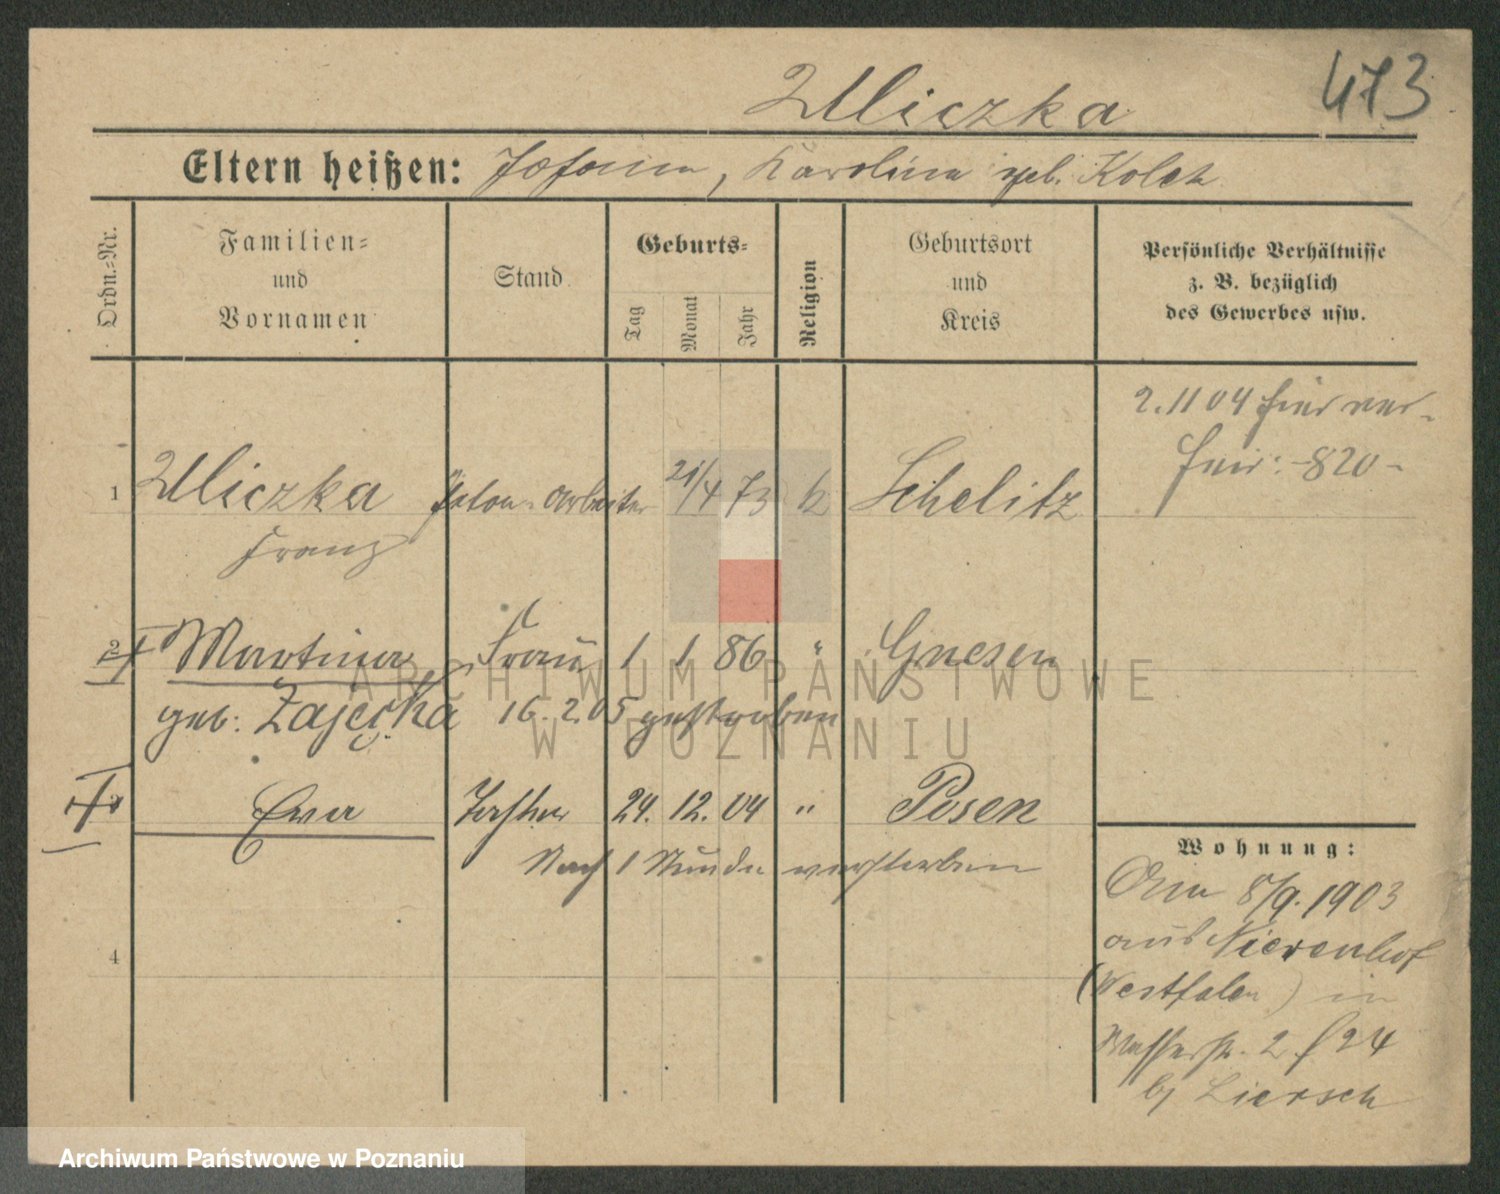 Uliczka
473
Eltern heißen: Johann, Karolina geb. Kolch
Ordn.-Nr.
Familien-
und
Vornamen
Stand
Geburts-
Tag
Monat
Jahr
Religion
Geburtsort
und
Kreis
Persönliche Verhältnisse
z. B. bezüglich
des Gewerbes usw.
2. 11 04 hier ver-
heir: -820-
1 Uliczka Arbeiter 21/4 73 k Schelitz
Franz
2 Martina Frau 1 1 86 " Gnesen
geb: Zajecka 16. 2. 05 gestorben
3 Eva Tochter 24. 12. 04 " Posen
Nach 1 Stunde verstorben
4
Wohnung:
Am 8/9. 1903
aus Nierenhof
(Westfalen) in
Wasserstr. 2 f 24
b/ Liersch
ARCHIWUM PAŃSTWOWE
W POZNANIU
Archiwum Państwowe w Poznaniu